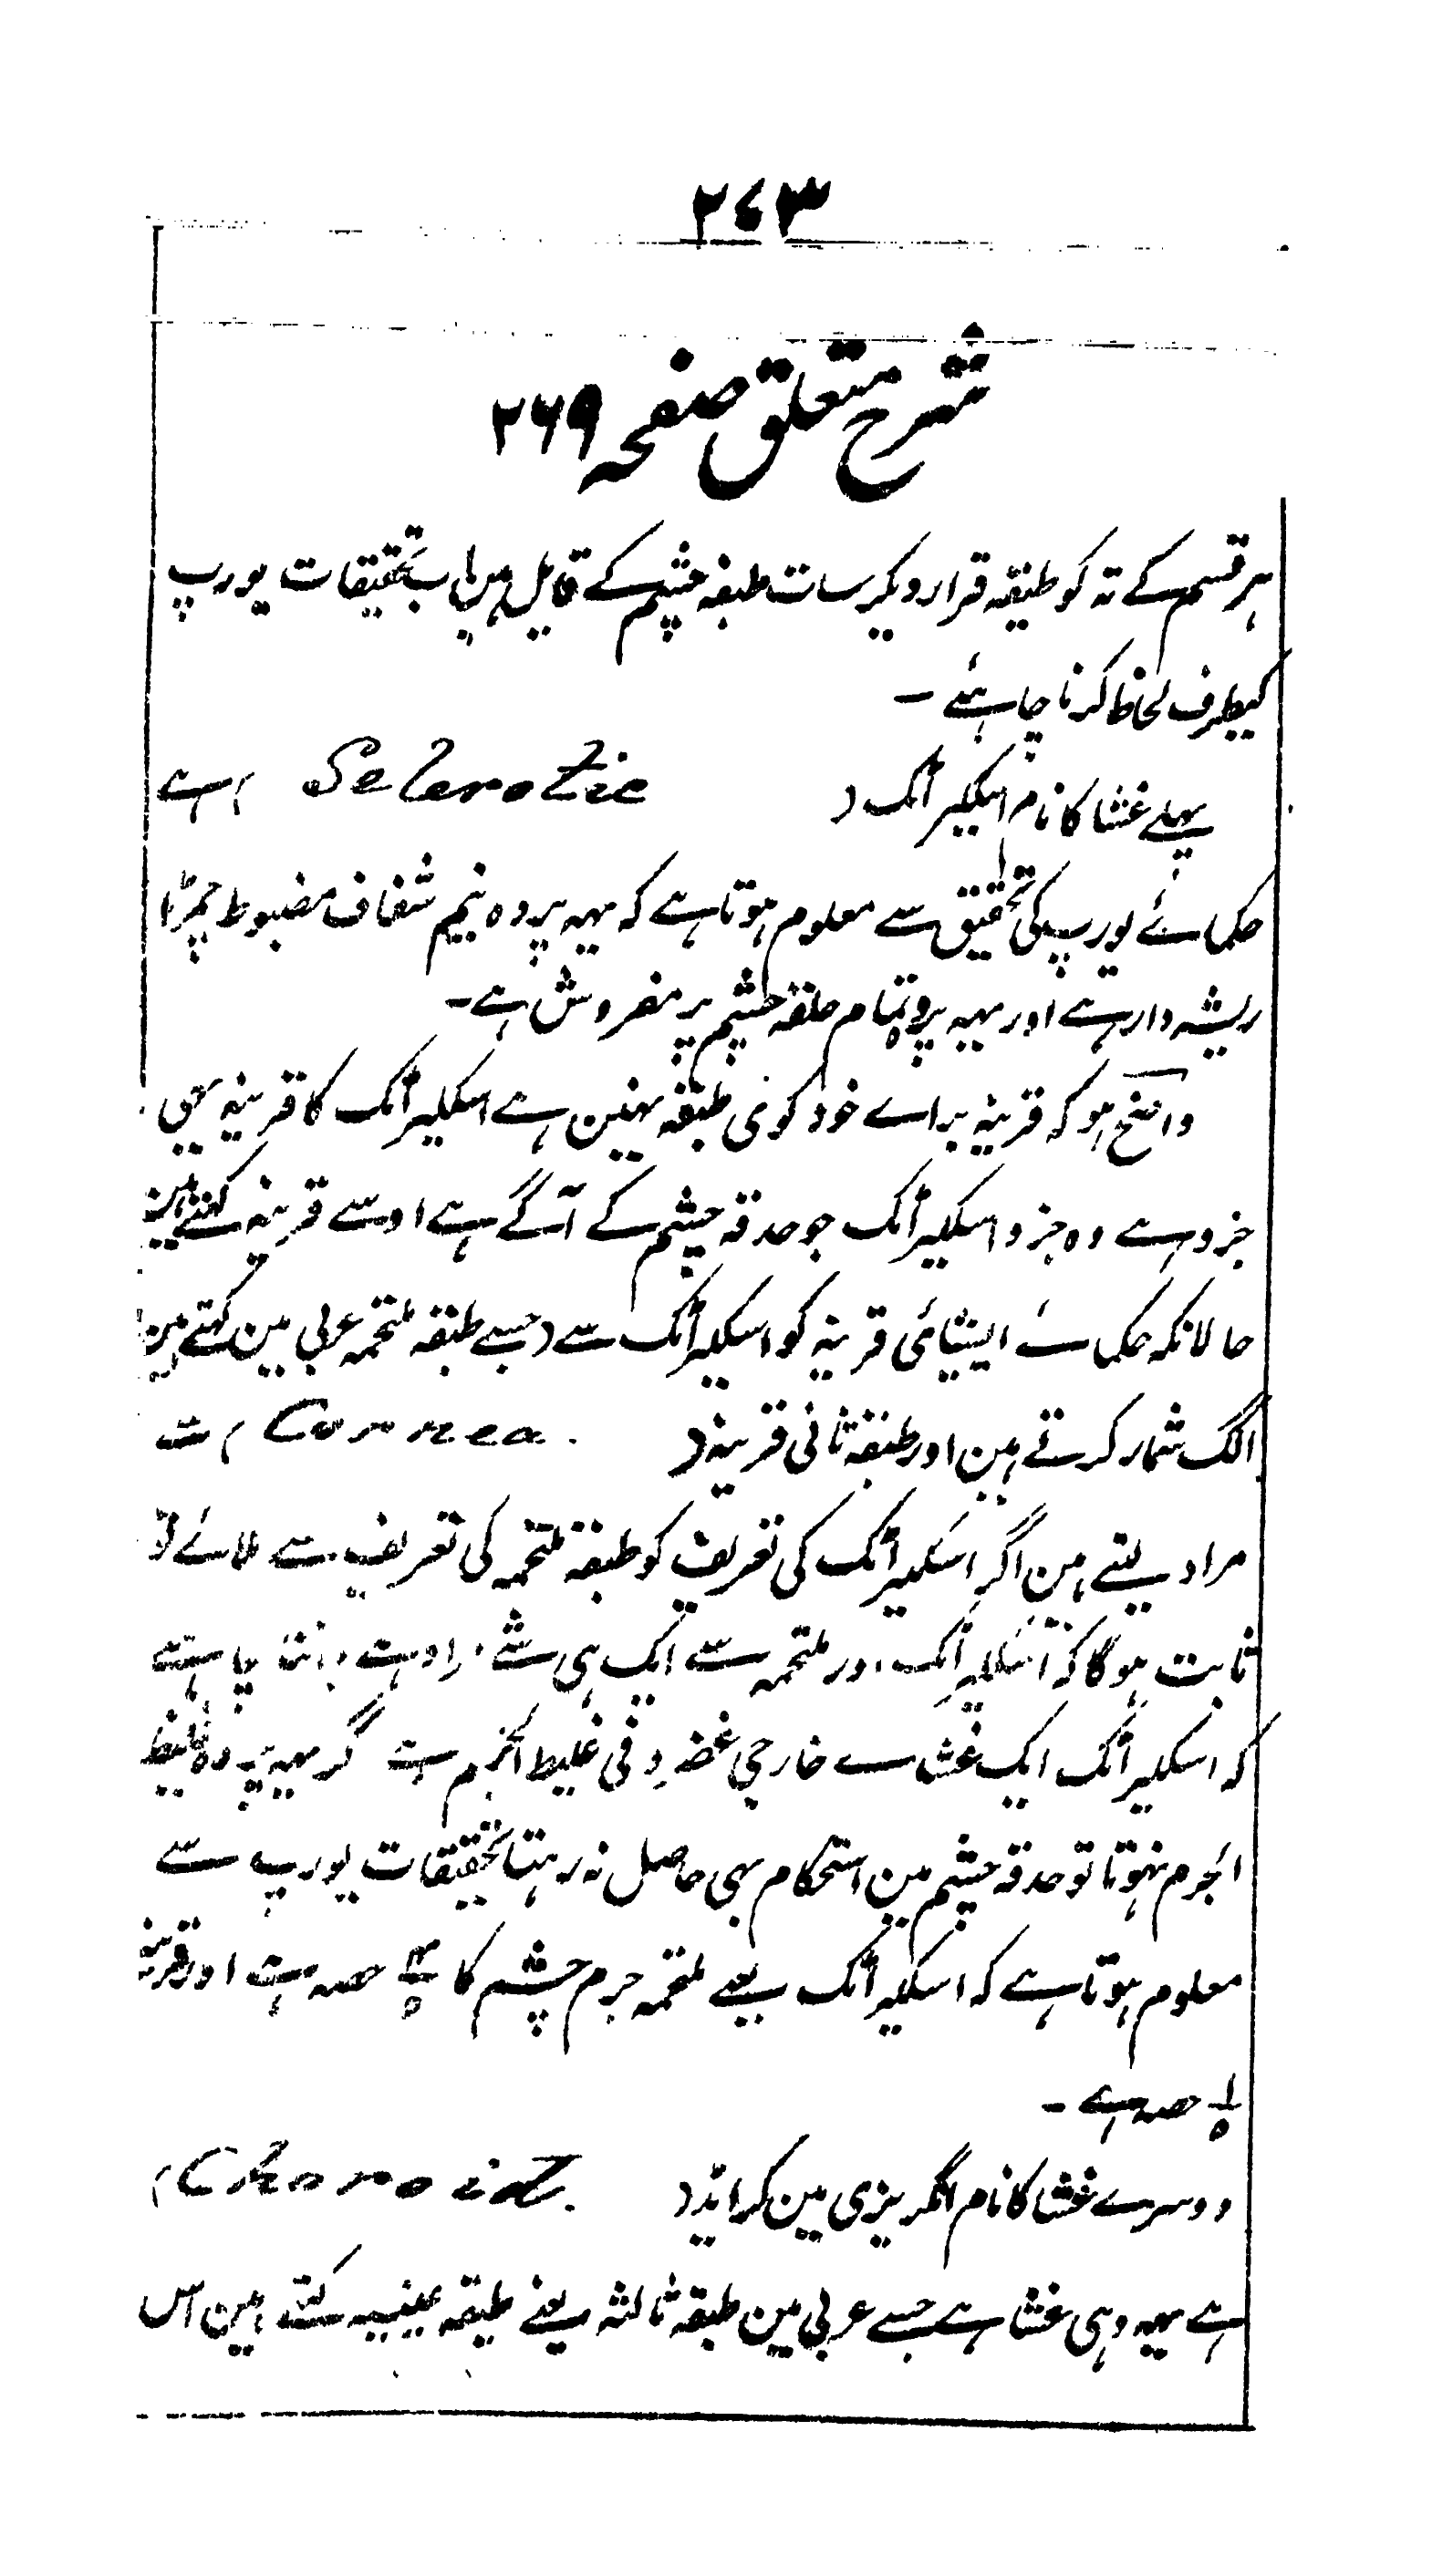 ۲۷۳
شرح متعلق صفحہ ۲۶۹
ہر قسم کے تہ کو طبقہ قرار دیکر سات طبقہ چشم کے قایل ہین اب تحقیقات یورپ
کیطرف لحاظ کرنا چاہئے ۔
پہلے غشا کا نام اسکلیراٹک ( Sclerotic ) ہے
حکمائے یورپ کی تحقیق سے معلوم ہوتا ہے کہ یہہ پردہ نیم شفاف مضبوط چمڑا
ریشہ دار ہے اور یہہ پردہ تمام حلقہ چشم پر مفروش ہے ۔
واضح ہو کہ قرینہ براے خود کوئی طبقہ نہین ہے اسکلیراٹک کا قرینہ بھی
جزو ہے وہ جزو اسکلیراٹک جو حدقہ چشم کے آگے ہے اوسے قرینہ کہتے ہین
حالانکہ حکمائے ایشیائی قرینہ کو اسکلیراٹک سے (جسے طبقہ ملتحمہ عربی مین کہتے ہین
الگ شمار کرتے ہین اور طبقہ ثانی قرینہ ( Cornea. ) سے
مراد لیتے ہین اگر اسکلیراٹک کی تعریف کو طبقہ ملتحمہ کی تعریف سے ملائے تو
ثابت ہوگا کہ اسکلیراٹک اور ملتحمہ سے ایک ہی شے مراد ہے جاننا چاہئے
کہ اسکلیراٹک ایک غشاے خارجی غضروفی غلیظ الجرم ہے گر یہہ پردہ غلیظ
الجرم نہوتا تو حدقہ چشم مین استحکام بہی حاصل نہ رہتا تحقیقات یورپ سے
معلوم ہوتا ہے کہ اسکلیراٹک یعنے ملتحمہ جرم چشم کا ۴/۵ حصہ ہے اور قرینہ
۱/۵ حصہ ہے ۔
دوسرے غشا کا نام انگریزی مین کرائڈ ( Choroid. )
ہے یہہ وہی غشا ہے جسے عربی مین طبقہ ثالثہ یعنے طبقہ عینبیہ کہتے ہین اس